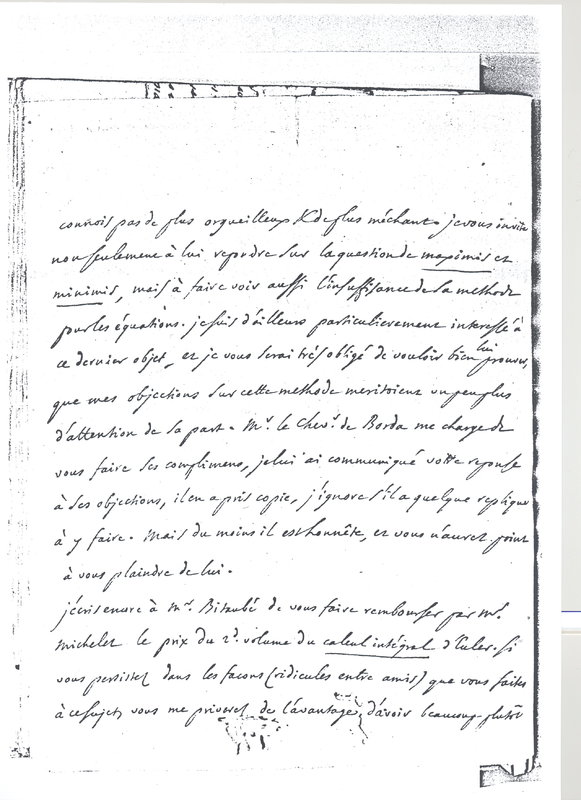 connois pas de plus orgueilleux & de plus méchant. je vous invite
non seulement à lui repondre sur la question de maximis et
minimis, mais à faire voir aussi l'insuffisance de sa methode
pour les équations. je suis d'ailleurs particulierement interessé à
ce dernier objet, et je vous serai très obligé de vouloir bien lui prouver,
que mes objections sur cette methode meritoient un peu plus
d'attention de sa part. Mr. le Chevr. de Borda me charge de
vous faire ses complimens, je lui ai communiqué votre reponse
à ses objections, il en a pris copie, j'ignore s'il a quelque replique
à y faire. Mais du moins il est honnête, et vous n'aurez point
à vous plaindre de lui.
j'écris encore à Mr. Bitaubé de vous faire rembourser par Mr.
Michelet le prix du 2d. volume du calcul intégral d'Euler. si
vous persistez dans les façons (ridicules entre amis) que vous faites
à ce sujet, vous me priverez de l'avantage d'avoir beaucoup plutôt